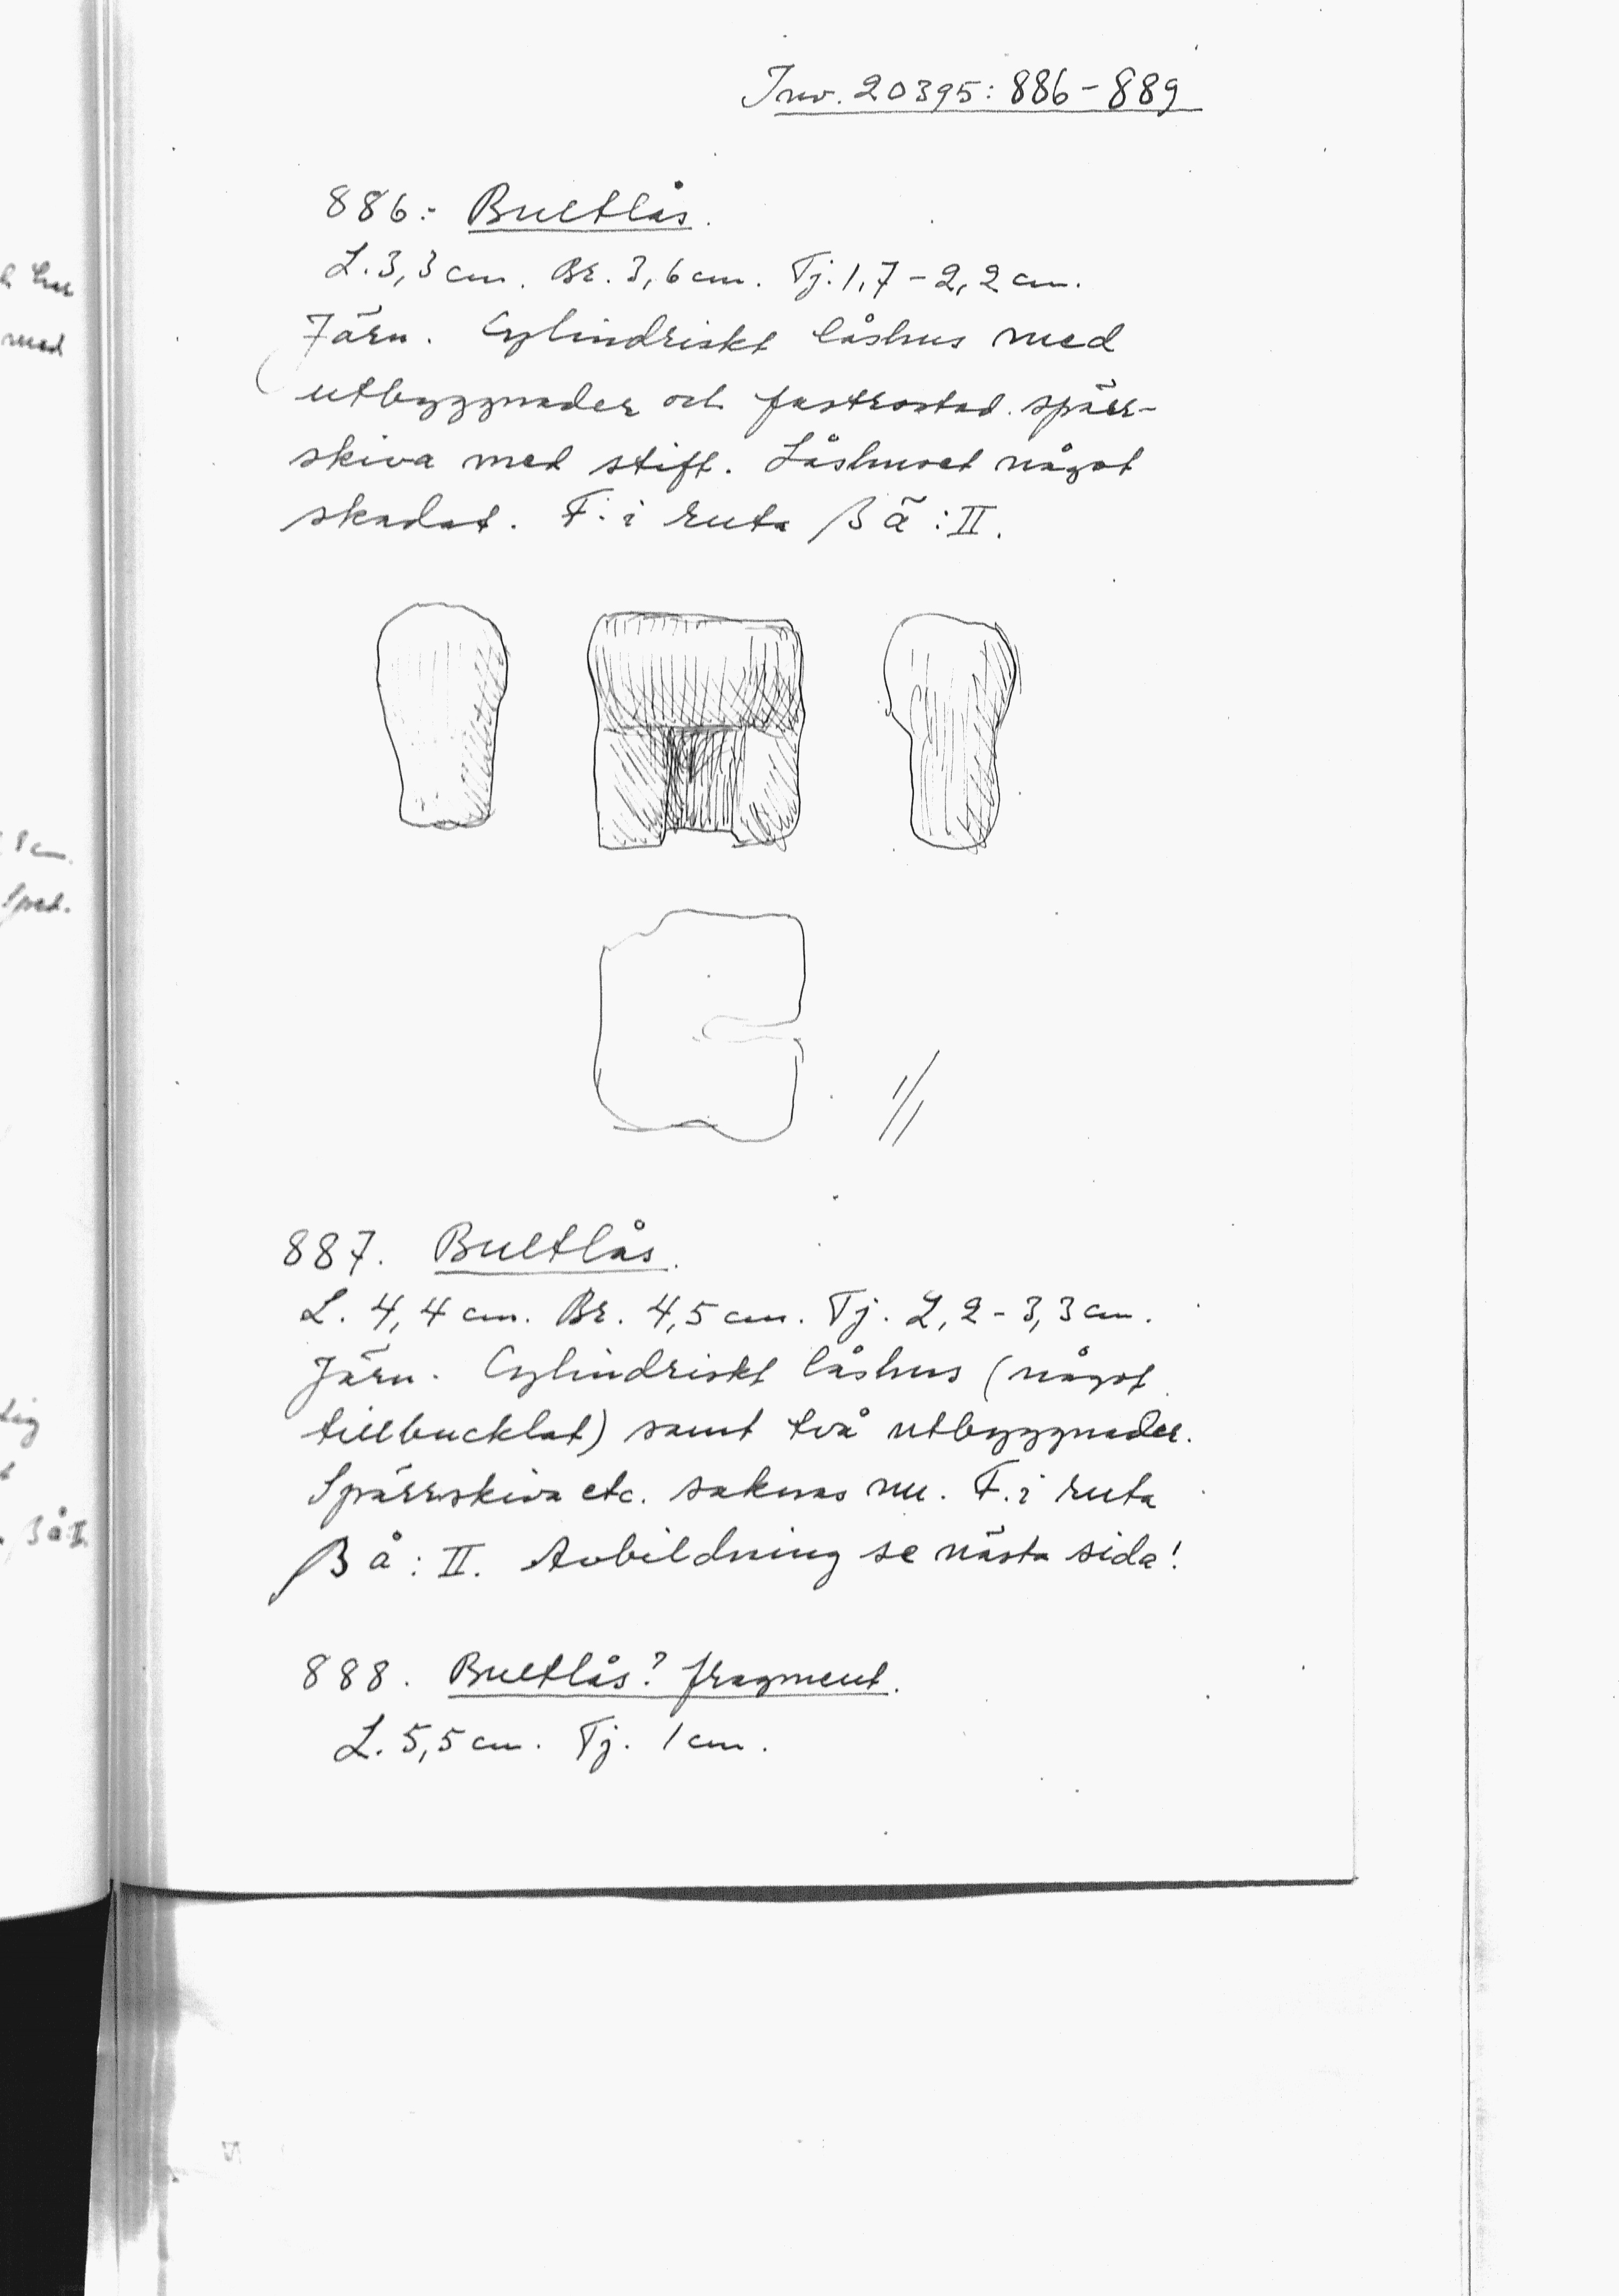 Inv. 20395: 886-889
886: Bultlås.
L. 3,3 cm. Br. 3,6 cm. Tj. 1,7-2,2 cm.
Järn. Cylindriskt låshus med
utbyggnader och fastrostad spärr-
skiva med stift. Låshuset något
skadat. F. i ruta βä:II.
1/1
887. Bultlås.
L. 4,4 cm. Br. 4,5 cm. Tj. 2,2-3,3 cm.
Järn. Cylindriskt låshus (något
tillbucklat) samt två utbyggnader.
Spärrskiva etc. saknas nu. F. i ruta
βå:II. Avbildning se nästa sida!
888. Bultlås? fragment.
L. 5,5 cm. Tj. 1 cm.
med
8 cm.
βå:II.